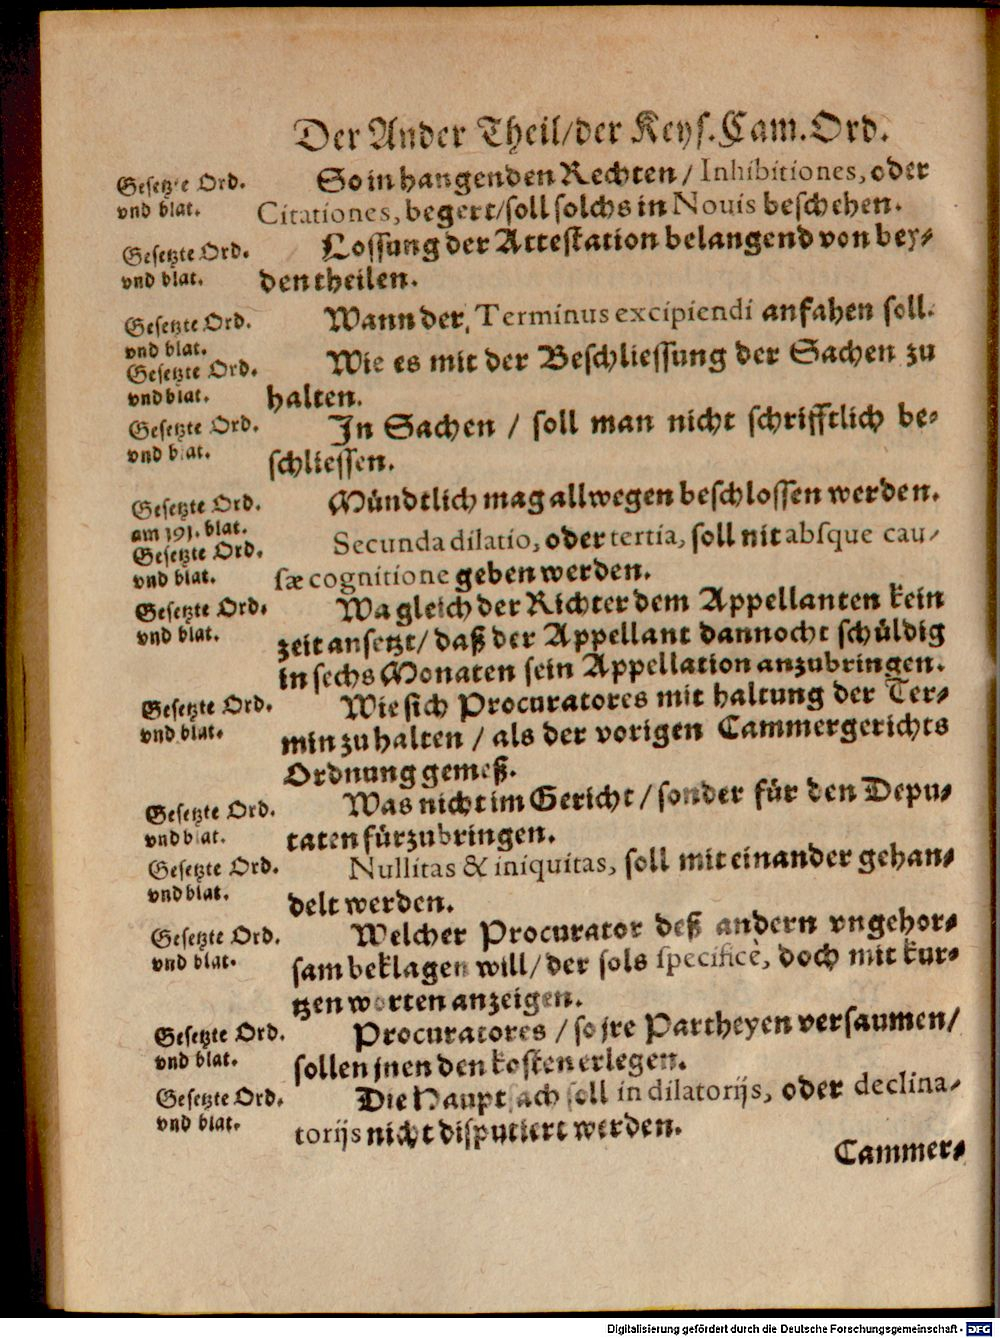 Der Ander Theil/der Keys. Cam. Ord.
Gesetzte Ord. So in hangenden Rechten / Inhibitiones, oder
vnd blat. Citationes, begert/soll solchs in Nouis beschehen.
Gesetzte Ord. Lossung der Attestation belangend von bey-
vnd blat. den theilen.
Gesetzte Ord. Wann der, Terminus excipiendi anfahen soll.
vnd blat.
Gesetzte Ord. Wie es mit der Beschliessung der Sachen zu
vnd blat. halten.
Gesetzte Ord. In Sachen / soll man nicht schrifftlich be-
vnd blat. schliessen.
Gesetzte Ord. Mündtlich mag allwegen beschlossen werden.
am 191. blat.
Gesetzte Ord. Secunda dilatio, oder tertia, soll nit absque cau-
vnd blat. sæ cognitione geben werden.
Gesetzte Ord. Wa gleich der Richter dem Appellanten kein
vnd blat. zeit ansetzt/ daß der Appellant dannocht schüldig
in sechs Monaten sein Appellation anzubringen.
Gesetzte Ord. Wie sich Procuratores mit haltung der Ter-
vnd blat. min zu halten / als der vorigen Cammergerichts
Ordnung gemeß.
Gesetzte Ord. Was nicht im Gericht / sonder für den Depu-
vnd blat. taten fürzubringen.
Gesetzte Ord. Nullitas & iniquitas, soll mit einander gehan-
vnd blat. delt werden.
Gesetzte Ord. Welcher Procurator deß andern vngehor-
vnd blat. sam beklagen will/ der sols specificè, doch mit kur-
tzen worten anzeigen.
Gesetzte Ord. Procuratores / so jre Partheyen versaumen/
vnd blat. sollen jnen den kosten erlegen.
Gesetzte Ord. Die Hauptsach soll in dilatorijs, oder declina-
vnd blat. torijs nicht disputiert werden.
Cammer-
Digitalisierung gefördert durch die Deutsche Forschungsgemeinschaft - DFG